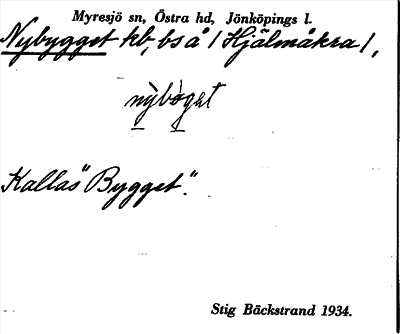 Myresjö sn, Östra hd, Jönköpings l.
Nybygget hb, bs å / Hjälmåkra /,
nỳbøgat
Kallas "Bygget".
Stig Bäckstrand 1934.